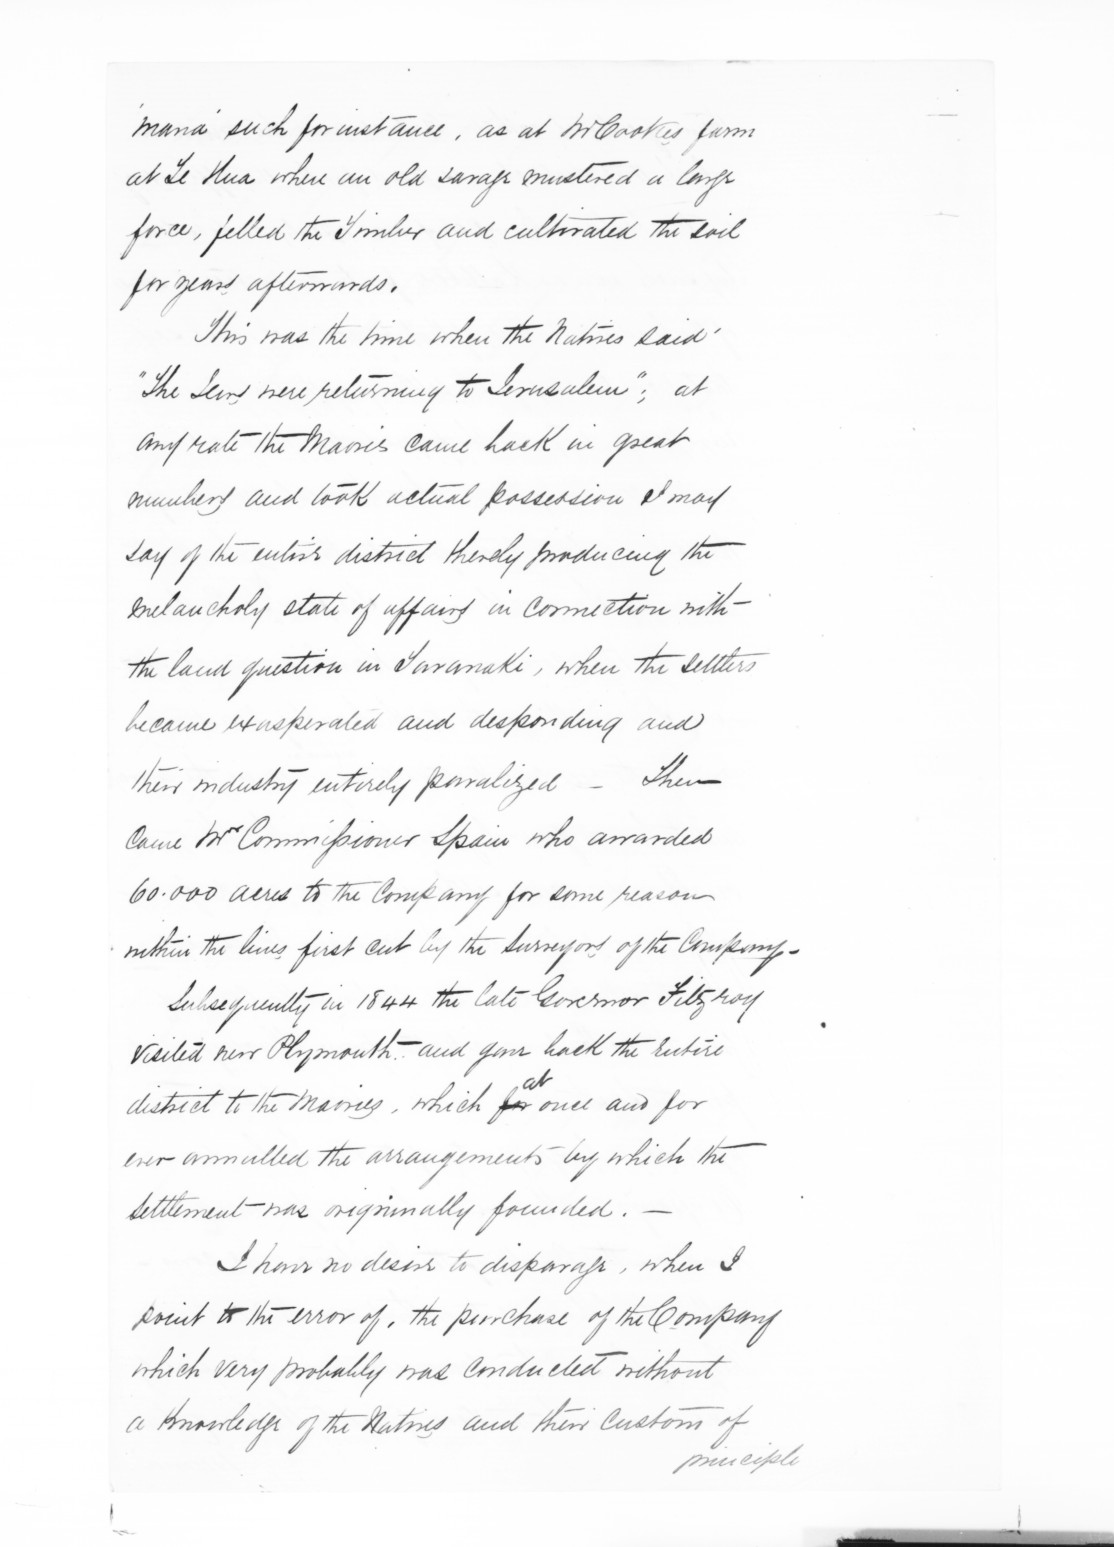 'mana' such for instance, as at Mr Cookes farm
at Te Hua where an old savage mustered a large
force, felled the Timber and cultivated the soil
for years afterwards.
This was the time when the Natives said
"The Jews were returning to Jerusalem"; at
any rate the Maories came back in great
numbers and took actual possession I may
say of the entire district thereby producing the
melancholy state of affairs in connection with
the land question in Taranaki, when the settlers
became exasperated and desponding and
their industry entirely paralized – Then
came Mr Commissioner Spain who awarded
60.000 acres to the Company for some reason
within the lines first cut by the Surveyors of the Company –
Subsequently in 1844 the late Governor Fitzroy
visited new Plymouth – and gave back the entire
district to the Maories, which for at once and for
ever annulled the arrangements by which the
settlement was originally founded. –
I have no desire to disparage, when I
point to the error of, the purchase of the Company
which very probably was conducted without
a knowledge of the Natives and their custom of
principle